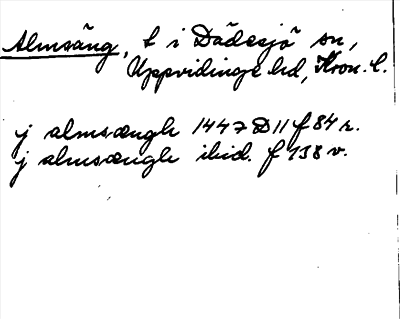 Almsäng, t i Dädesjö sn,
Uppvidinge hd, Kron. l.
j almsængh 1447 D 11 f 84 r.
j almsængh ibid. f 138 v.